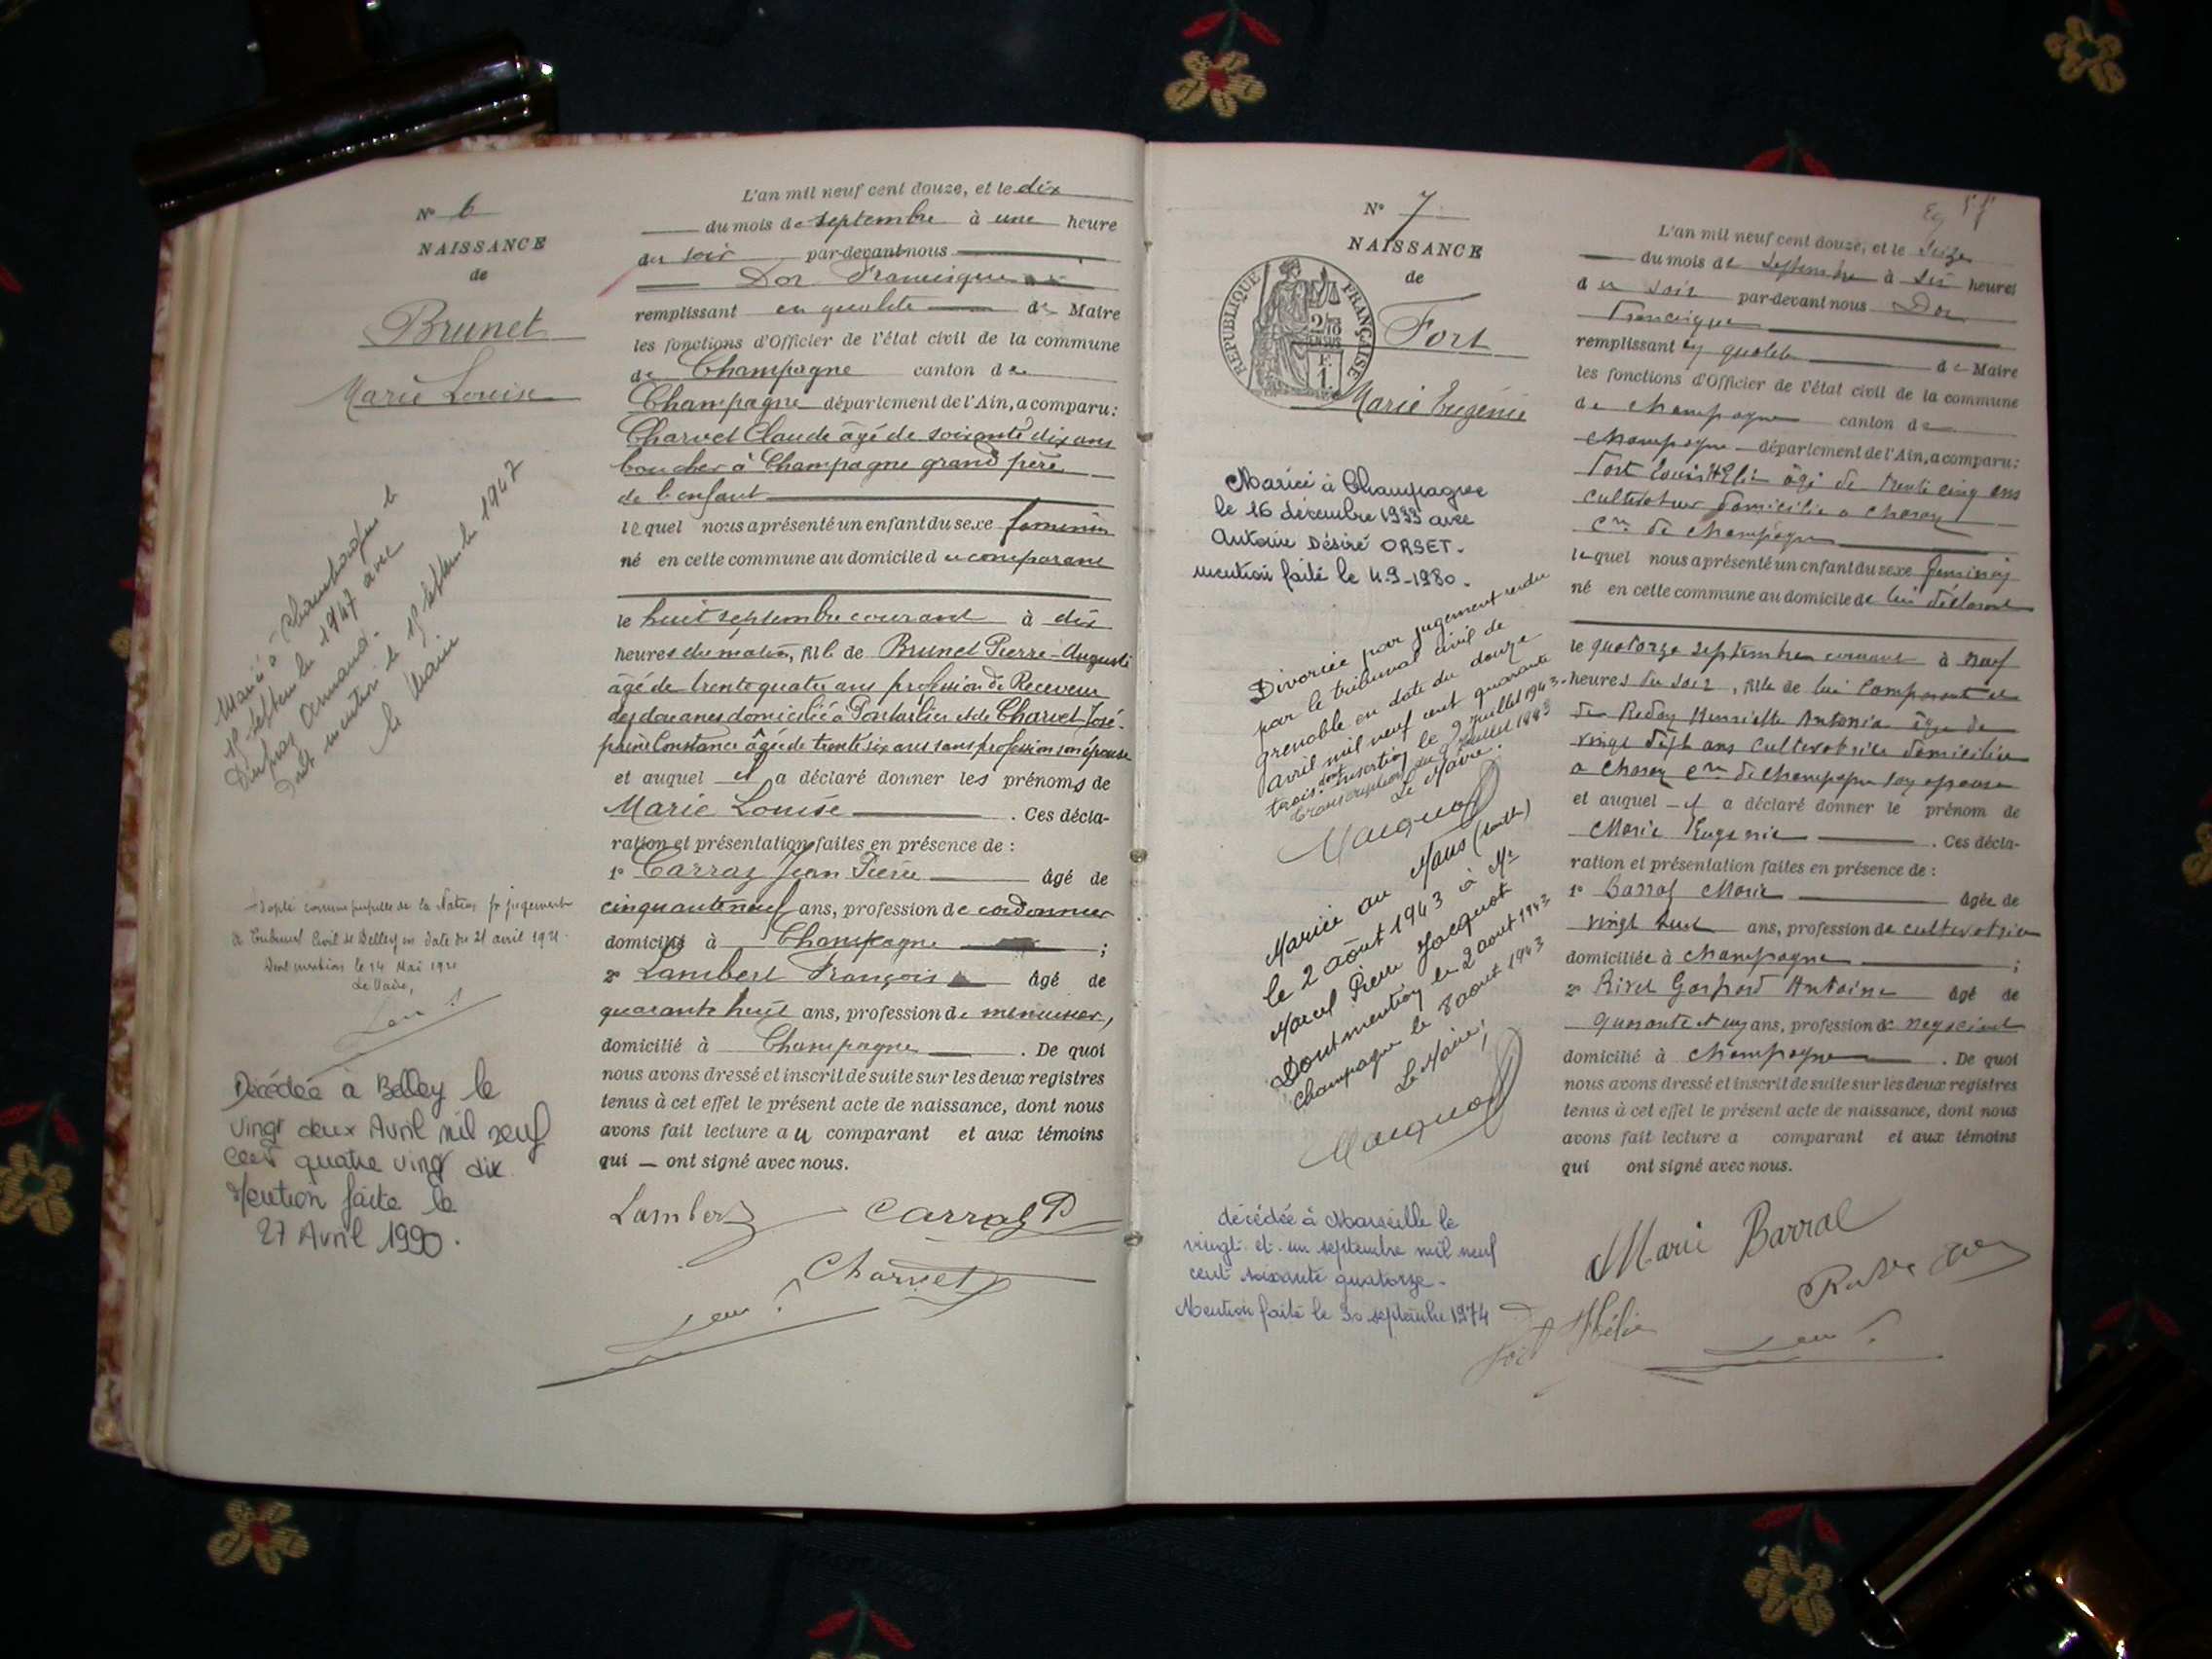 N° 6
NAISSANCE
de
Brunet
Marie Louise
Mariée à
septembre 1947 avec
Armand.
Dont mention le septembre 1947
Le Maire
comme pupille de la Nation jugement
Tribunal Civil de Belley en date du 21 avril 1921.
Dont mention le 14 Mai 1921
Le Maire,
Décédée à Belley le
vingt deux Avril mil neuf
cent quatre vingt dix
Mention faite le
27 Avril 1990.
L'an mil neuf cent douze, et le dix
du mois de septembre à une heure
du soir par-devant nous
Dor Francisque
remplissant en qualité de Maire
les fonctions d'Officier de l'état civil de la commune
de Champagne canton de
Champagne département de l'Ain, a comparu:
Charvet Claude âgé de soixante dix ans
boucher à Champagne grand père
de l'enfant
lequel nous a présenté un enfant du sexe féminin
né en cette commune au domicile du comparant
le huit septembre courant à dix
heures du matin, fille de Brunet Pierre-Auguste
âgé de trente quatre ans profession de Receveur
des douanes domicilié à Pontarlier et de Charvet José-
phine Constance âgée de trente six ans sans profession son épouse
et auquel il a déclaré donner les prénoms de
Marie Louise . Ces décla-
ration et présentation faites en présence de :
1° Carraz Jean Pierre âgé de
cinquante neuf ans, profession de cordonnier
domicilié à Champagne ;
2° Lambert François âgé de
quarante huit ans, profession de menuisier,
domicilié à Champagne . De quoi
nous avons dressé et inscrit de suite sur les deux registres
tenus à cet effet le présent acte de naissance, dont nous
avons fait lecture au comparant et aux témoins
qui — ont signé avec nous.
Lambert Carraz P
Charvet
N° 7
NAISSANCE
de
REPUBLIQUE FRANÇAISE
Fort
Marie Eugénie
Mariée à Champagne
le 16 décembre 1933 avec
Antoine Désiré ORSET.
mention faite le 4.9-1980.
Divorcée par jugement rendu
par le tribunal civil de
Grenoble en date du douze
avril mil neuf cent quarante
trois. dont insertion le 9 juillet 1943.
transcription du 9 juillet 1943
Le Maire.
Mariée au Mans (Sarthe)
le 2 août 1943 à Mr
Marcel Pierre Jacquot
Dont mention le 2 août 1943
Champagne le 8 août 1943
Le Maire,
décédée à Marseille le
vingt et un septembre mil neuf
cent soixante quatorze.
Mention faite le 30 septembre 1974
L'an mil neuf cent douze, et le seize
du mois de septembre à six heures
du soir par-devant nous Dor
Francisque
remplissant en qualité de Maire
les fonctions d'Officier de l'état civil de la commune
de Champagne canton de
Champagne département de l'Ain, a comparu:
Fort Louis Hélie âgé de trente cinq ans
cultivateur domicilié à
Cne de Champagne
lequel nous a présenté un enfant du sexe féminin
né en cette commune au domicile de lui déclarant
le quatorze septembre courant à neuf
heures du soir, fille de lui comparant et
de Henriette Antonia âgée de
vingt sept ans cultivatrice domiciliée
à Cne de Champagne son épouse
et auquel il a déclaré donner le prénom de
Marie Eugénie . Ces décla-
ration et présentation faites en présence de :
1° Barral Marie âgée de
vingt huit ans, profession de cultivatrice
domiciliée à Champagne ;
2° Gaspard Antoine âgé de
quarante et un ans, profession de négociant
domicilié à Champagne . De quoi
nous avons dressé et inscrit de suite sur les deux registres
tenus à cet effet le présent acte de naissance, dont nous
avons fait lecture a comparant et aux témoins
qui ont signé avec nous.
Marie Barral
Fort Hélie